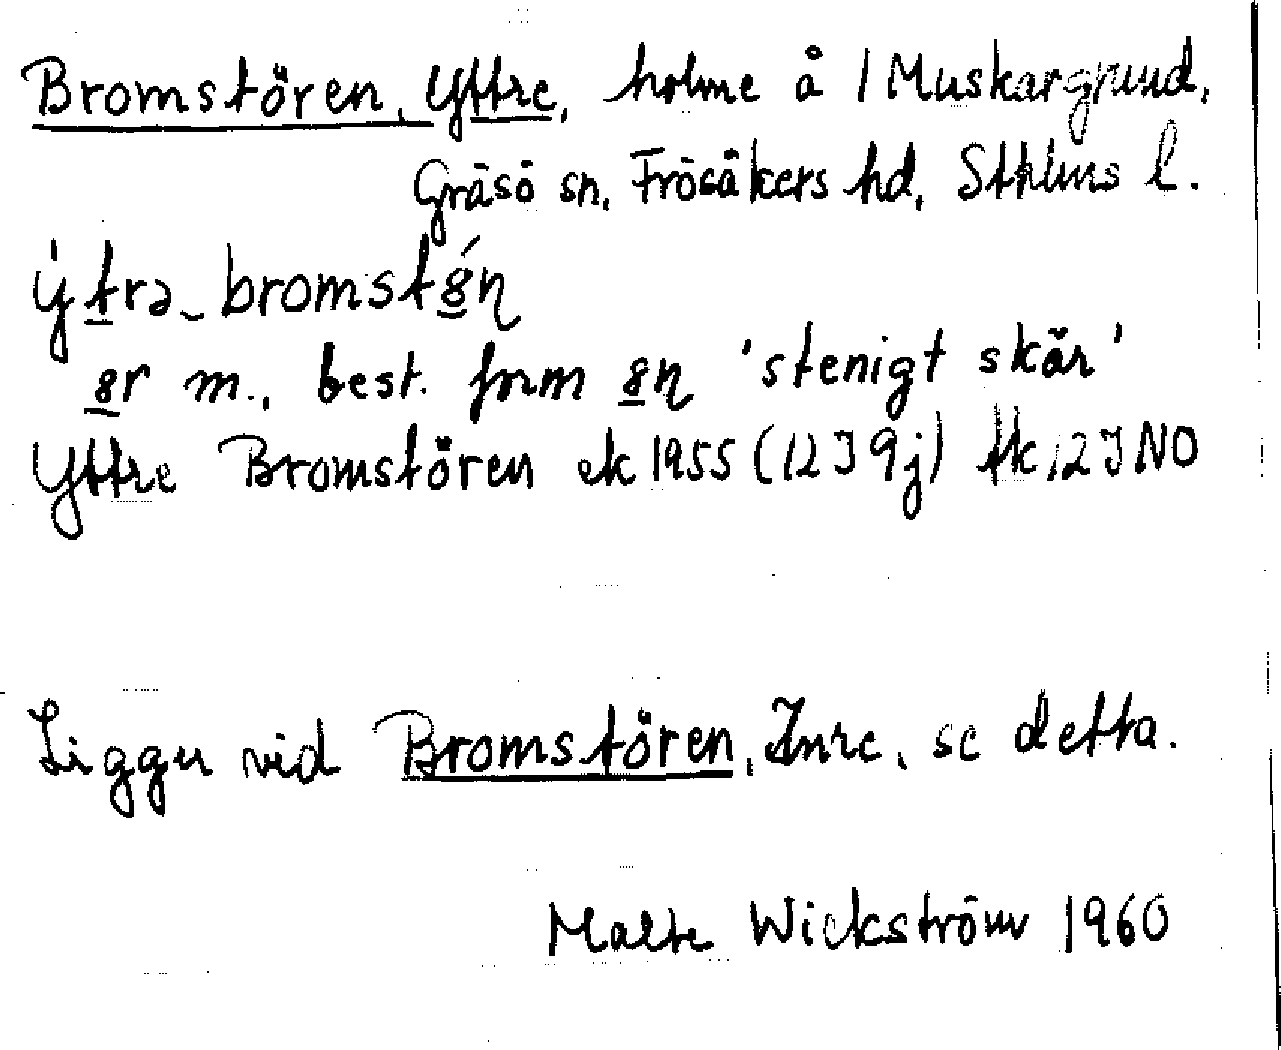 Bromstören, Yttre, holme å 1 Muskargrund,
Gräsö sn, Frösåkers hd, Sthlms l.
ýtrə‿bromstǿɳ
ør m., best. form øɳ 'stenigt skär'
Yttre Bromstören ek 1955 (12J 9j) tk 12J NO
Ligger vid Bromstören, Inre, se detta.
Malte Wickström 1960